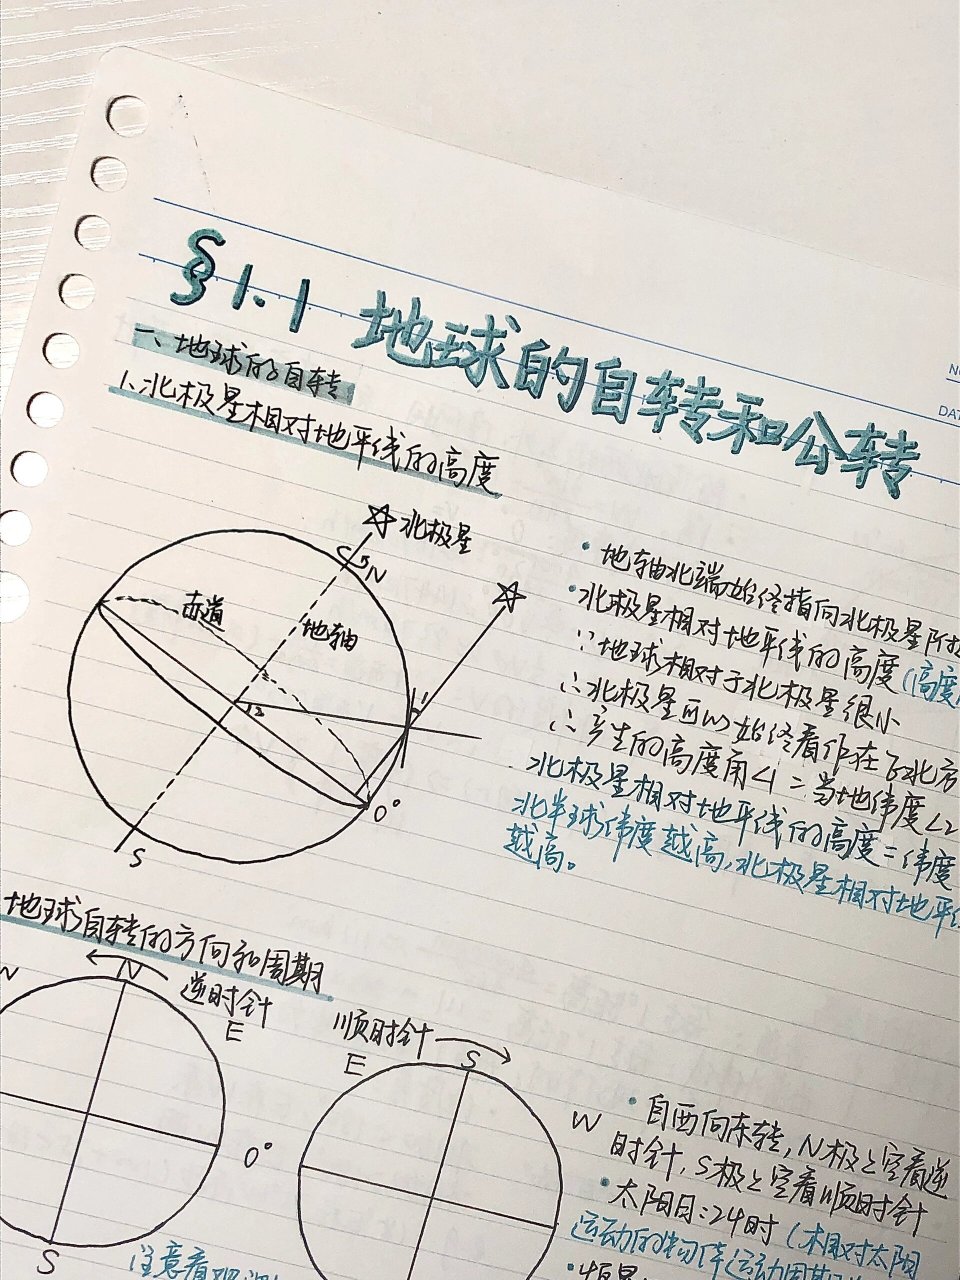 §1.1 地球的自转和公转
NO
DAT
一、地球的自转
1、北极星相对地平线的高度
北极星
N
赤道
地轴
1
2
0°
S
·地轴北端始终指向北极星附
·北极星相对地平线的高度(高度
∵地球相对于北极星很小
∴北极星可以始终看作在正北方
∴产生的高度角∠1=当地纬度∠2
北极星相对地平线的高度=纬度
北半球纬度越高,北极星相对地平
越高。
地球自转的方向和周期
N
逆时针
E
W
0°
S
顺时针
E
S
W
·自西向东转,N极上空看逆
时针,S极上空看顺时针
·太阳日:24时(相对太阳
运动的物体(运动周期
·恒星
注意看